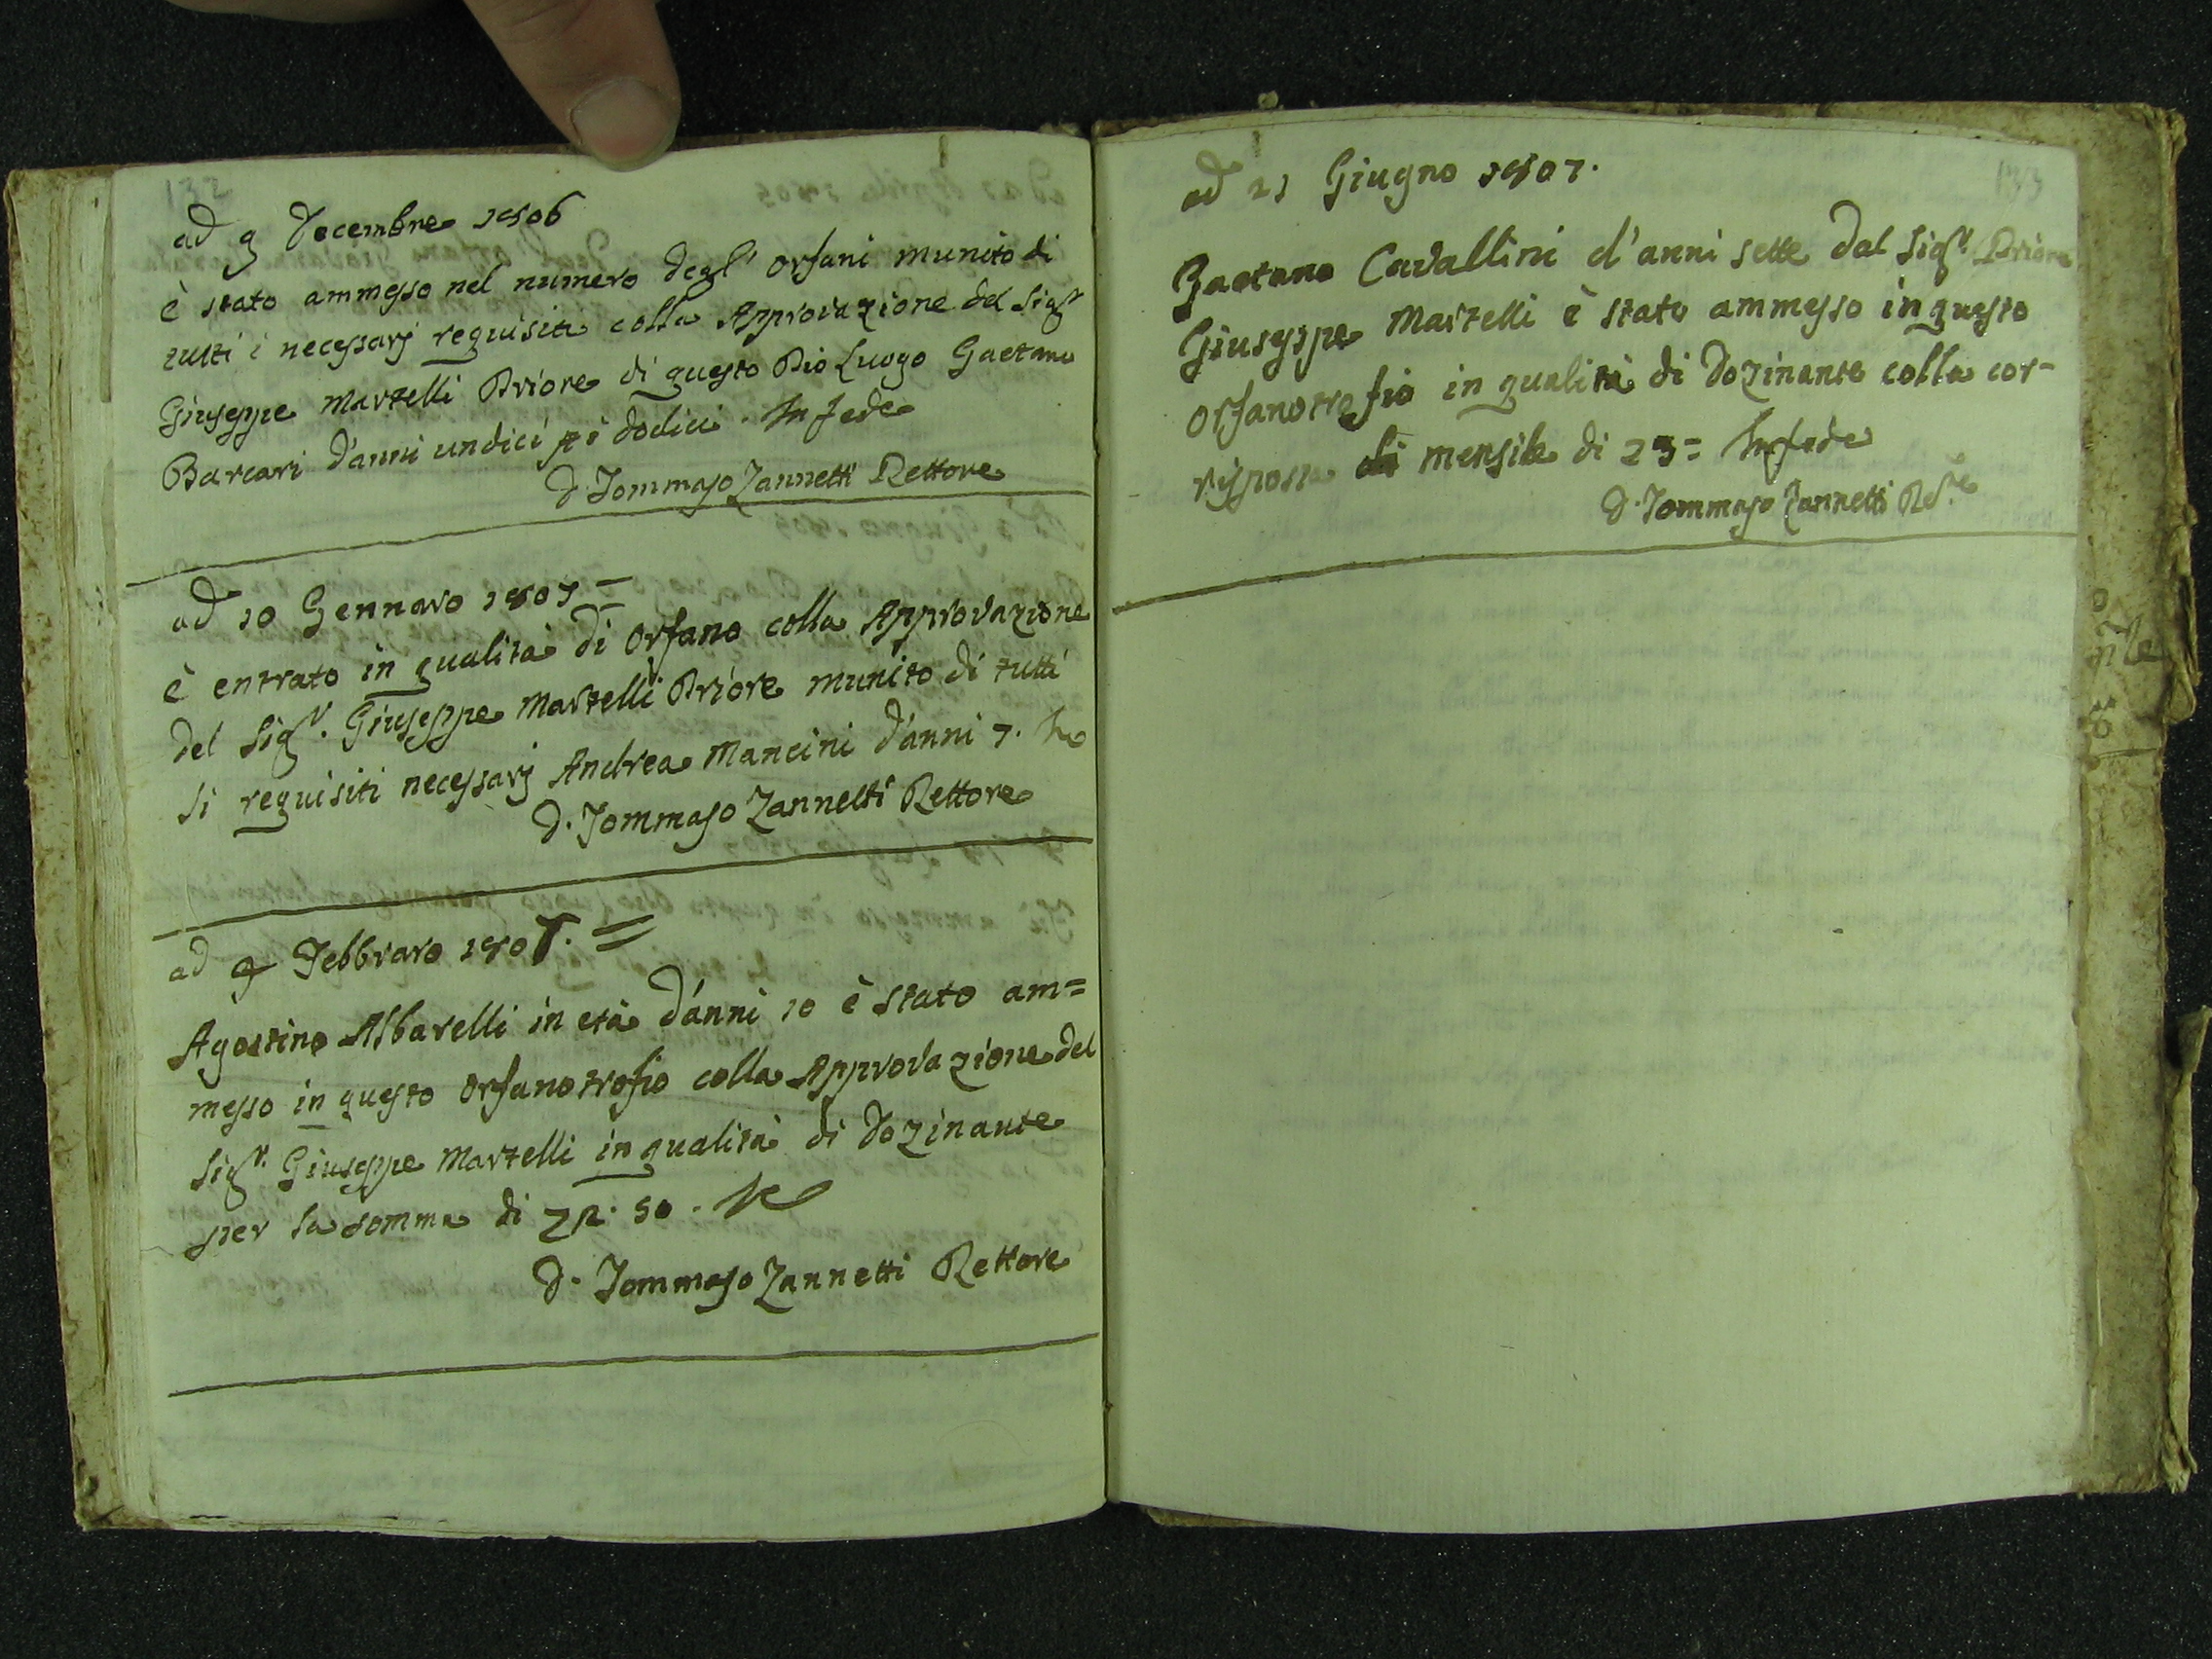 132
ad 9 Decembre 1806
è stato ammesso nel numero degl' orfani munito di
tutti i necessarj requisiti colla Approvazione del Sigr
Giuseppe Martelli Priore di questo Pio Luogo Gaetano
Barcari d'anni undici pi dodici. In fede
D. Tommaso Zannetti Rettore
ad 10 Gennaro 1807 =
è entrato in qualità di orfano colla Approvazione
del Sigr. Giuseppe Martelli Priore munito di tutti
li requisiti necessarj Andrea Mancini d'anni 7.
D. Tommaso Zannetti Rettore
ad 9 Febbraro 1807. =
Agostino Albarelli in età d'anni 10 è stato am=
messo in questo orfanotrofio colla Approvazione del
Sigr. Giuseppe Martelli in qualità di Dozinante
per la somma di 50.
D. Tommaso Zannetti Rettore
133
ad 21 Giugno 1807.
Gaetano Cavallini d'anni sette dal Sigr. Priore
Giuseppe Martelli è stato ammesso in questo
orfanotrofio in qualità di Dozinante colla cor-
risposta mensile di 25= In fede
D. Tommaso Zannetti Re.